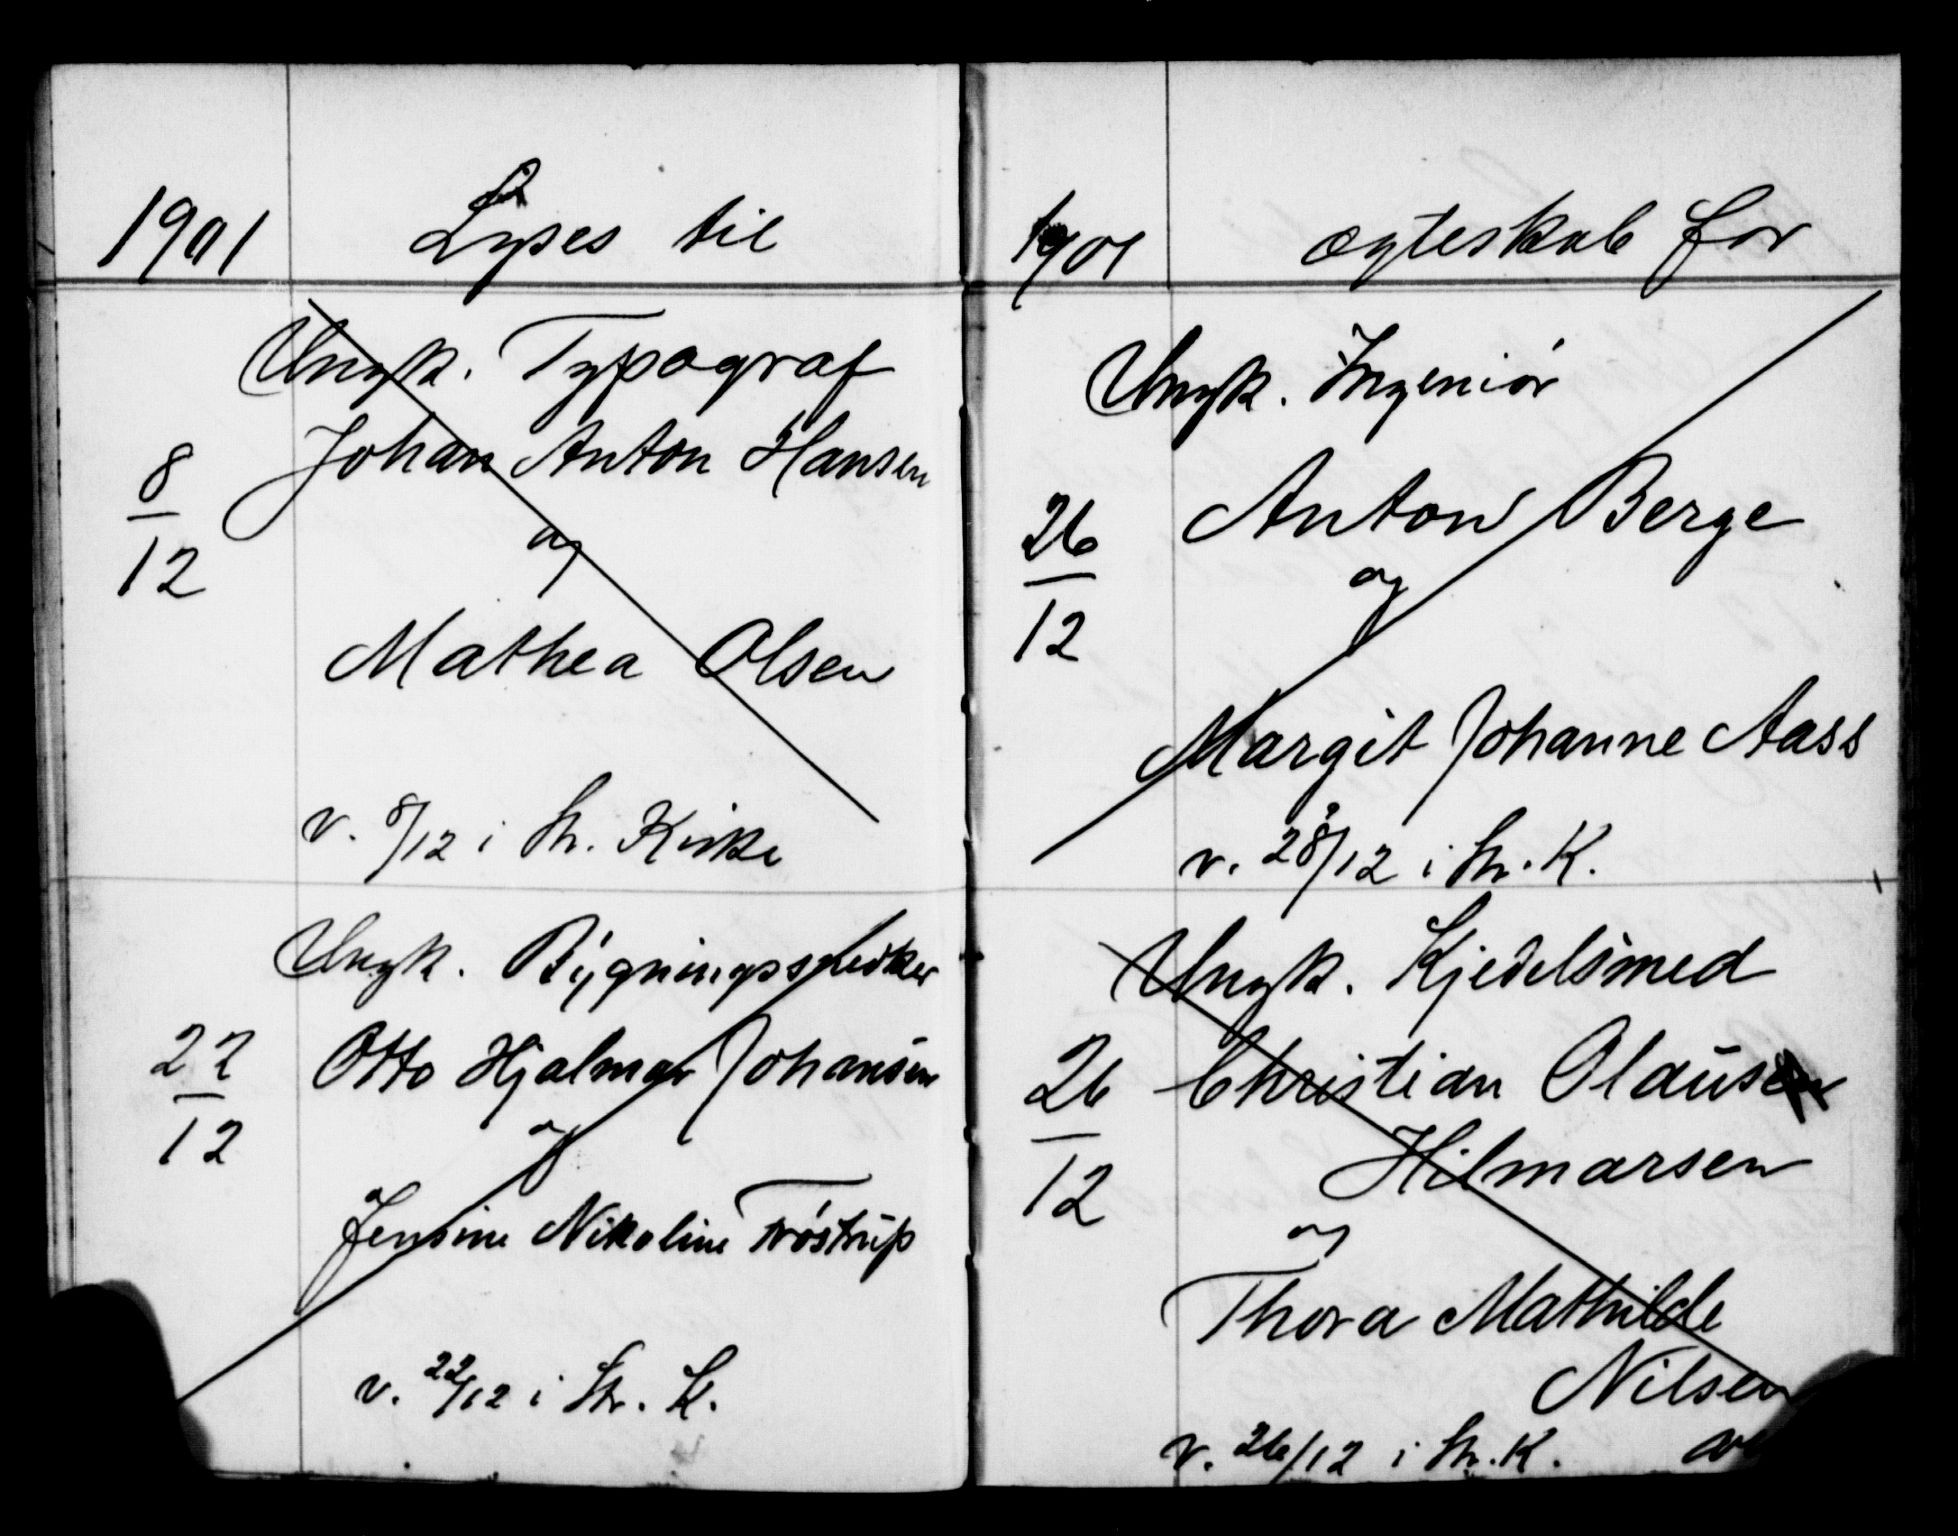 1901 Lyses til
Ungk. Typograf
Johan Anton Hansen
8/12
og
Mathea Olsen
v. 8/12 i Str. Kirke
Ungk. Bygningssnedker
22/12
Otto Hjalmar Johansen
og
Jensine Nikoline Tröstrup
v. 22/12 i Str. K.
1901 ægteskab for
Ungk. Ingeniör
26/12
Anton Berge
og
Margit Johanne Aass
v. 28/12 i Str. K.
Ungk. Kjedelsmed
26/12
Christian Olausen
Hilmarsen
og
Thora Mathilde
Nilsen
v. 26/12 i Str. K.